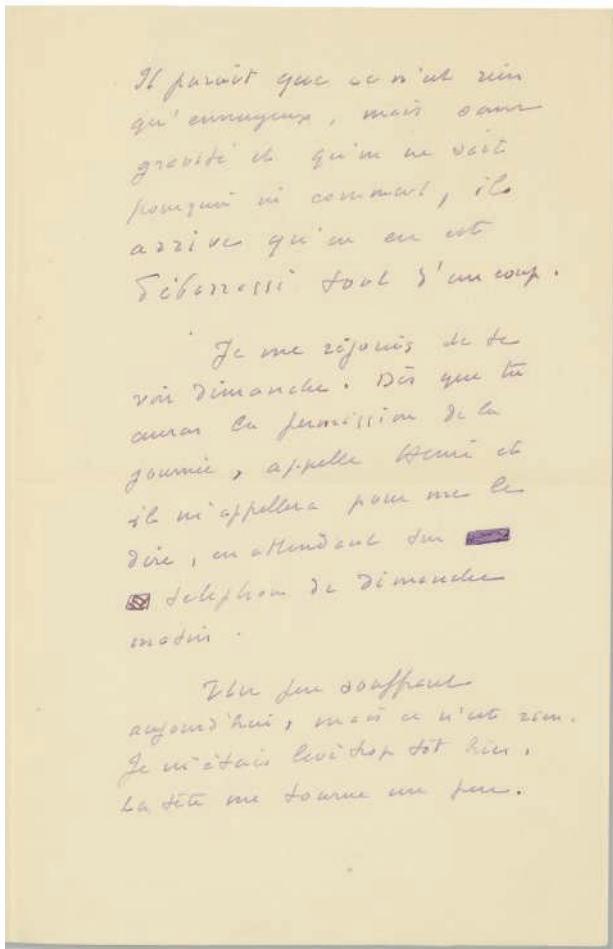 Il paraît que ce n'est rien
qu'ennuyeux, mais sans
gravité et qu'on ne sait
pourquoi ni comment, il
arrive qu'on en est
débarrassé tout d'un coup.
Je me réjouis de te
voir dimanche. Dès que tu
auras la permission de la
journée, appelle Henri et
il m'appellera pour me le
dire, en attendant ton
téléphone de dimanche
matin.
Un peu souffrant
aujourd'hui, mais ce n'est rien.
Je m'étais levé trop tôt hier.
La tête me tourne un peu.